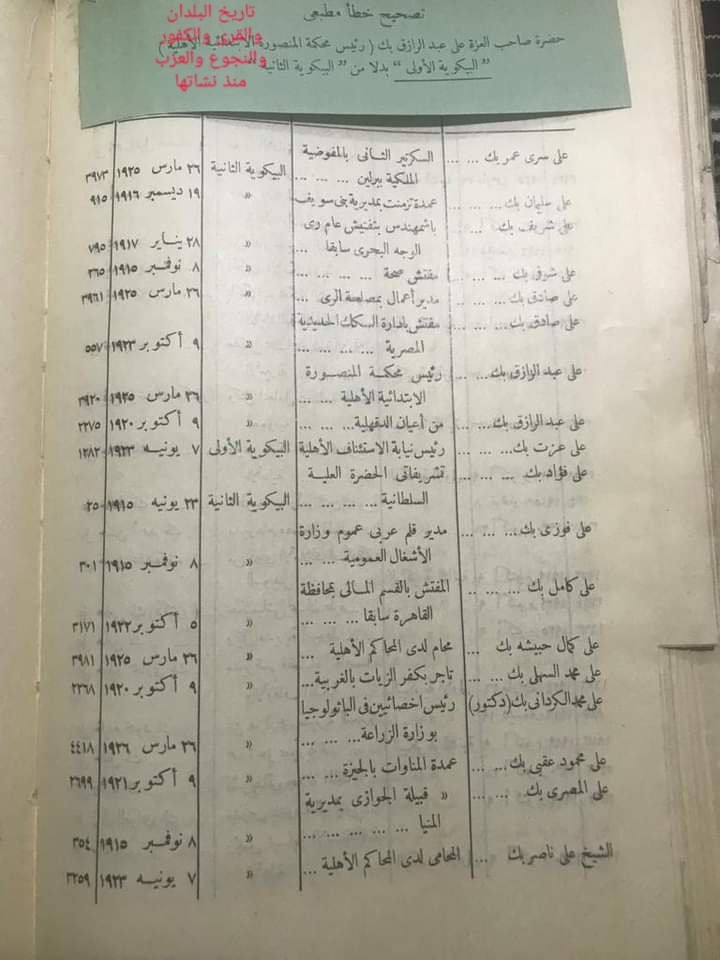 تصحيح خطأ مطبعى
تاريخ البلدان
والقرى والكفور
والنجوع والعزب
منذ نشاتها
حضرة صاحب العزة على عبد الرازق بك (رئيس محكمة المنصورة الابتدائية الأهلية)
"البيكوية الأولى" بدلا من "البيكوية الثانية"
على سرى عمر بك ... ... السكرتير الثانى بالمفوضية
الملكية ببرلين ... ... البيكوية الثانية ٢٦ مارس ١٩٢٥ ٣٩٧٣
على سليمان بك ... ... عمدة تزمنت بمديرية بنى سويف « ١٩ ديسمبر ١٩١٦ ٩١٥
على شريف بك ... ... باشمهندس بتفتيش عام رى
الوجه البحرى سابقا ... « ٢٨ يناير ١٩١٧ ٧٩٥
على شوقى بك ... ... مفتش صحة ... ... ... « ٨ نوفمبر ١٩١٥ ٣٦٥
على صادق بك ... ... مدير أعمال بمصلحة الرى ... « ٢٦ مارس ١٩٢٥ ٣٩٦١
على صادق بك ... ... مفتش بادارة السكك الحديدية
المصرية ... ... ... « ٩ أكتوبر ١٩٢٣ ٥٥٧
على عبد الرازق بك ... ... رئيس محكمة المنصورة
الابتدائية الأهلية ... ... « ٢٦ مارس ١٩٢٥ ٣٩٢٠
على عبد الرازق بك ... ... من أعيان الدقهلية ... ... « ٩ أكتوبر ١٩٢٠ ٢٢٧٥
على عزت بك ... ... رئيس نيابة الاستئناف الأهلية البيكوية الأولى ٧ يونيه ١٩٢٣ ١٢٨٢
على فؤاد بك ... ... تشريفاتى الحضرة العلية
السلطانية ... ... ... البيكوية الثانية ٢٣ يونيه ١٩١٥ ٢٥
على فوزى بك ... ... مدير قلم عربى عموم وزارة
الأشغال العمومية ... ... « ٨ نوفمبر ١٩١٥ ٣٠١
على كامل بك ... ... المفتش بالقسم المالى بمحافظة
القاهرة سابقا ... ... « ٥ أكتوبر ١٩٢٢ ٣١٧١
على كمال حبيشه بك ... محام لدى المحاكم الأهلية ... « ٢٦ مارس ١٩٢٥ ٣٩٨١
على محمد السهلى بك ... ... تاجر بكفر الزيات بالغربية ... « ٩ أكتوبر ١٩٢٠ ٢٢٦٨
على محمد الكردانى بك (دكتور) رئيس اخصائيين فى الباتولوجيا
بوزارة الزراعة ... ... « ٢٦ مارس ١٩٢٦ ٤٤١٨
على محمود عقبى بك ... ... عمدة المناوات بالجيزة ... ... « ٩ أكتوبر ١٩٢١ ٢٦٩٩
على المصرى بك ... ... « قبيلة الجوازى بمديرية
المنيا ... ... ... « ٨ نوفمبر ١٩١٥ ٣٥٤
الشيخ على ناصر بك ... المحامى لدى المحاكم الأهلية ... « ٧ يونيه ١٩٢٣ ٣٢٥٩